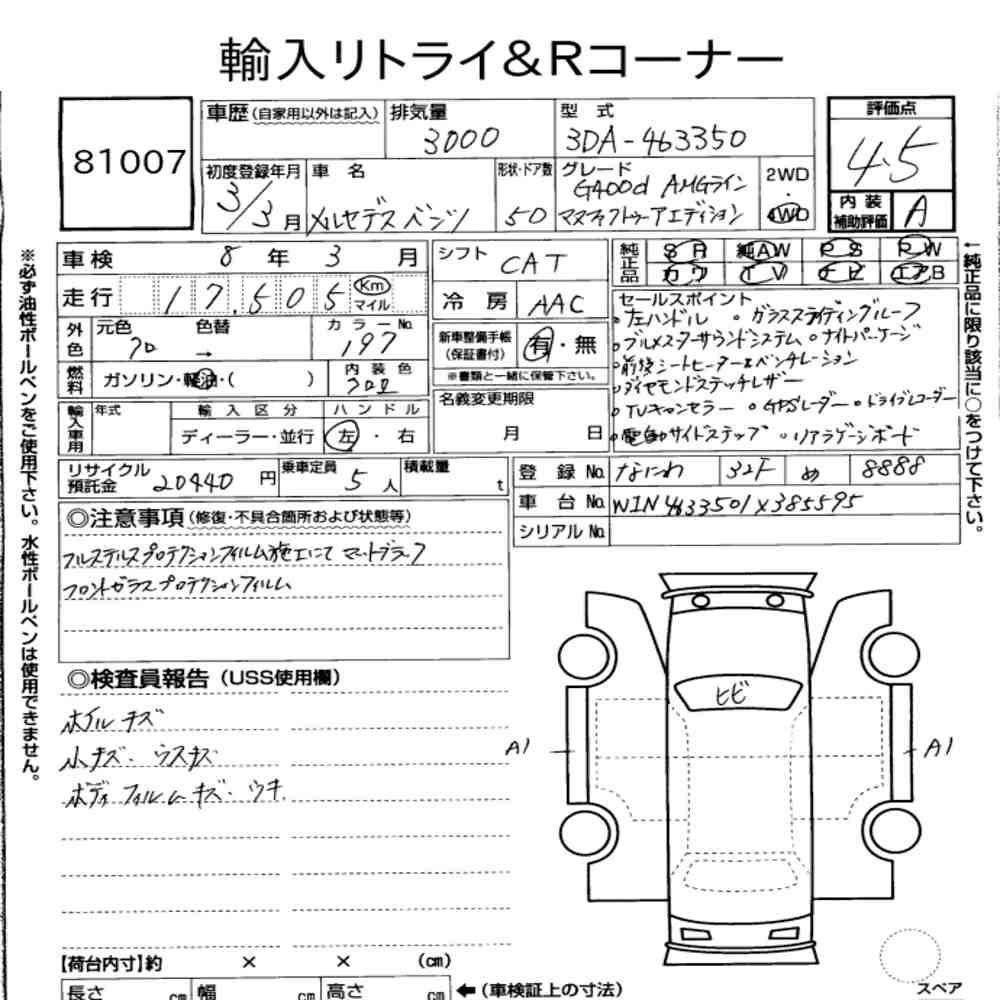 輸入リトライ&Rコーナー
81007
車歴 (自家用以外は記入)
排気量 3000
型式 3DA-463350
評価点 4.5
初度登録年月 3/3月
車名 メルセデスベンツ
形状・ドア数 5D
グレード G400d AMGライン
マヌファクトゥーアエディション
2WD・4WD
内装補助評価 A
車検 8年3月
シフト CAT
純正品 SR 純AW PS PW
カワ TV ナビ エアB
走行 17,505 Km マイル
冷房 AAC
外色 元色 クロ 色替 →
カラーNo. 197
新車整備手帳(保証書付) 有・無
※書類と一緒に保管下さい。
燃料 ガソリン・軽油・( )
内装色 クロ
名義変更期限 月 日
輸入車用 年式
輸入区分 ディーラー・並行
ハンドル 左・右
セールスポイント
・左ハンドル ・ガラススライディングルーフ
・ブルメスターサウンドシステム ・ナイトパッケージ
・前後シートヒーター&ベンチレーション
・ダイヤモンドステッチレザー
・TVキャンセラー ・GPSレーダー ・ドライブレコーダー
・電動サイドステップ ・リアラゲージボード
リサイクル預託金 20440円
乗車定員 5人
積載量 t
登録No. なにわ 32F め 8888
車台No. W1N4633501X385595
シリアルNo.
◎注意事項 (修復・不具合箇所および状態等)
フルステルスプロテクションフィルム施工にて マットブラック
フロントガラスプロテクションフィルム
◎検査員報告 (USS使用欄)
ホイルキズ
小キズ・ウスキズ
ボディフィルムキズ・ウキ
ヒビ
A1
A1
【荷台内寸】約 × × (cm)
長さ cm 幅 cm 高さ cm
←(車検証上の寸法)
スペア
※必ず油性ボールペンをご使用下さい。水性ボールペンは使用できません。
←純正品に限り該当に○をつけて下さい。